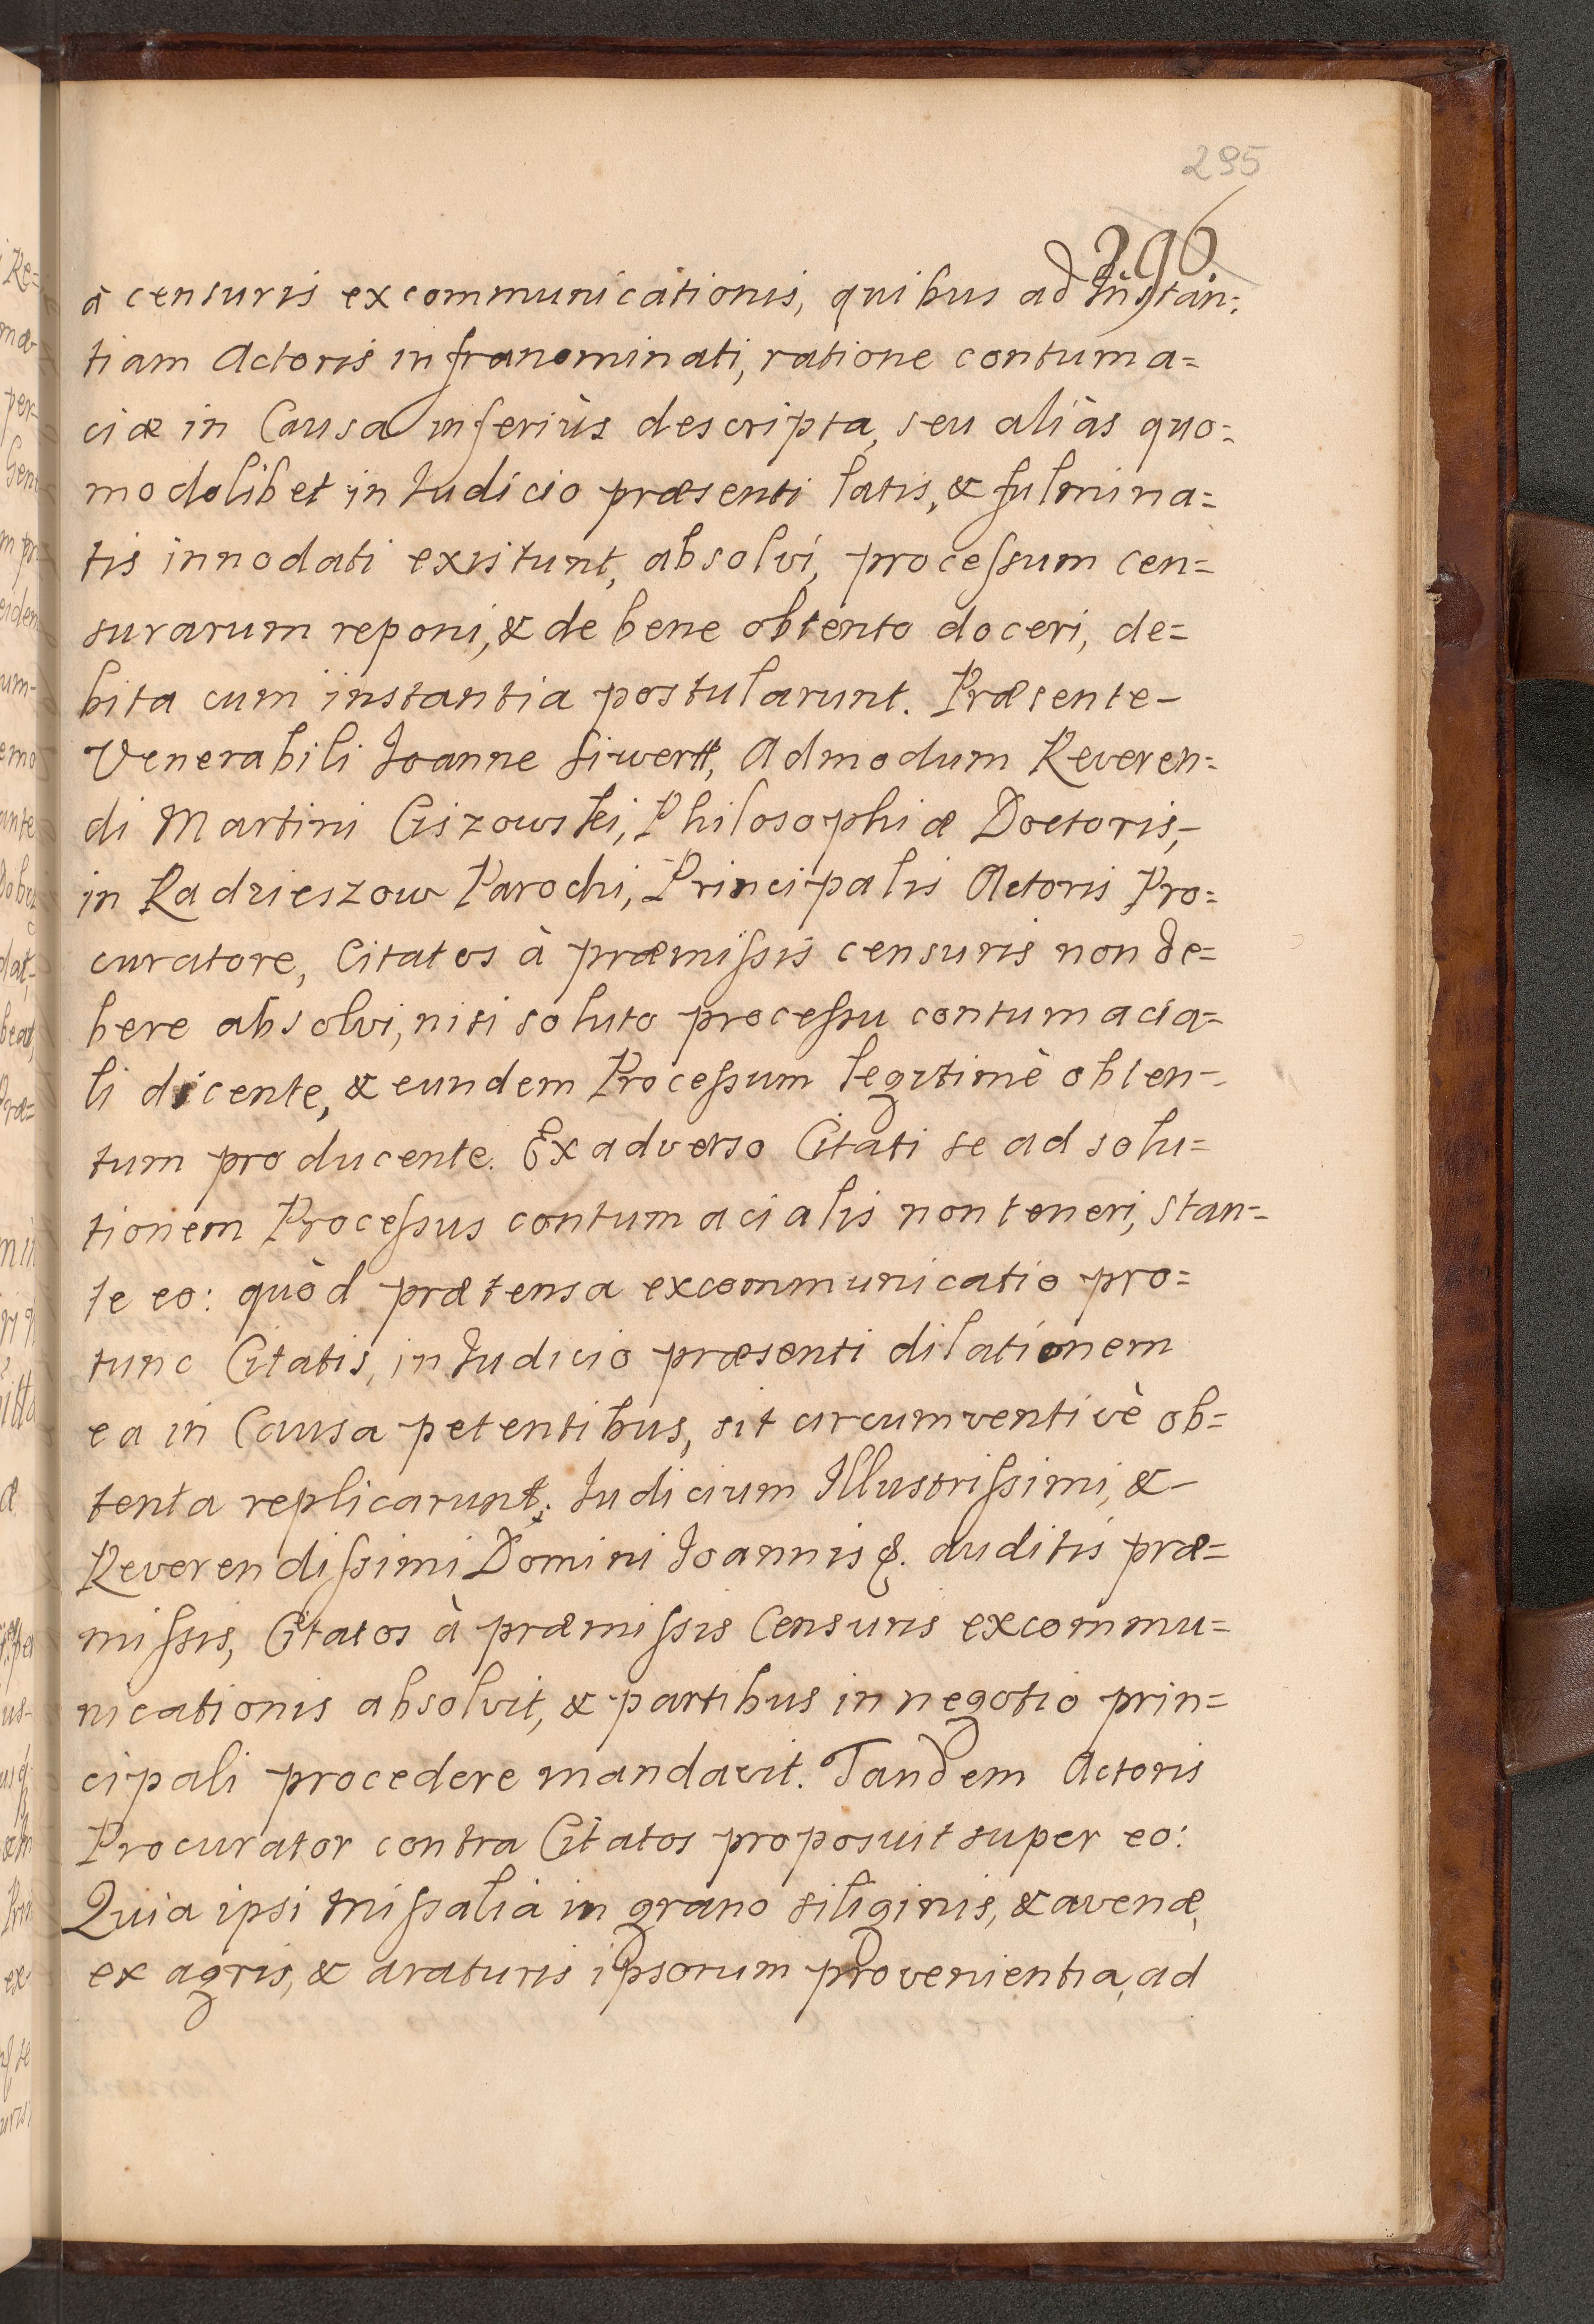 295
296.
à censuris excommunicationis, quibus ad Instan:
tiam Actoris infranominati, ratione contuma=
ciæ in Causa inferiùs descripta, seu aliàs quo=
modolibet in Iudicio præsenti latis, & fulmina=
tis innodati existunt, absolvi, proceſsum cen=
surarum reponi, & de bene obtento doceri, de=
bita cum instantia postularunt. Præsente-
Venerabili Joanne Siwertt, Admodum Reveren=
di Martini Ciszowski, Philosophiæ Doctoris,-
in Radzieszow Parochi, Principalis Actoris Pro=
curatore, Citatos à præmiſsis censuris non de=
bere absolvi, nisi soluto proceſsu contumacia=
li dicente, & eundem Proceſsum legitimè obten-
tum producente. Ex adverso Citati se ad solu=
tionem Proceſsus contumacialis non teneri, stan=
te eo: quòd prætensa excommunicatio pro=
tunc Citatis, in Iudicio præsenti dilationem
ea in Causa petentibus, sit circumventivè ob=
tenta replicarunt. Iudicium Illustriſsimi, &-
Reverendiſsimi Domini Joannis &. auditis præ=
miſsis, Citatos à præmiſsis Censuris excommu=
nicationis absolvit, & partibus in negotio prin=
cipali procedere mandavit. Tandem Actoris
Procurator contra Citatos proposuit super eo:
Quia ipsi Miſsalia in grano siliginis, & avenæ,
ex agris, & araturis ipsorum provenientia, ad